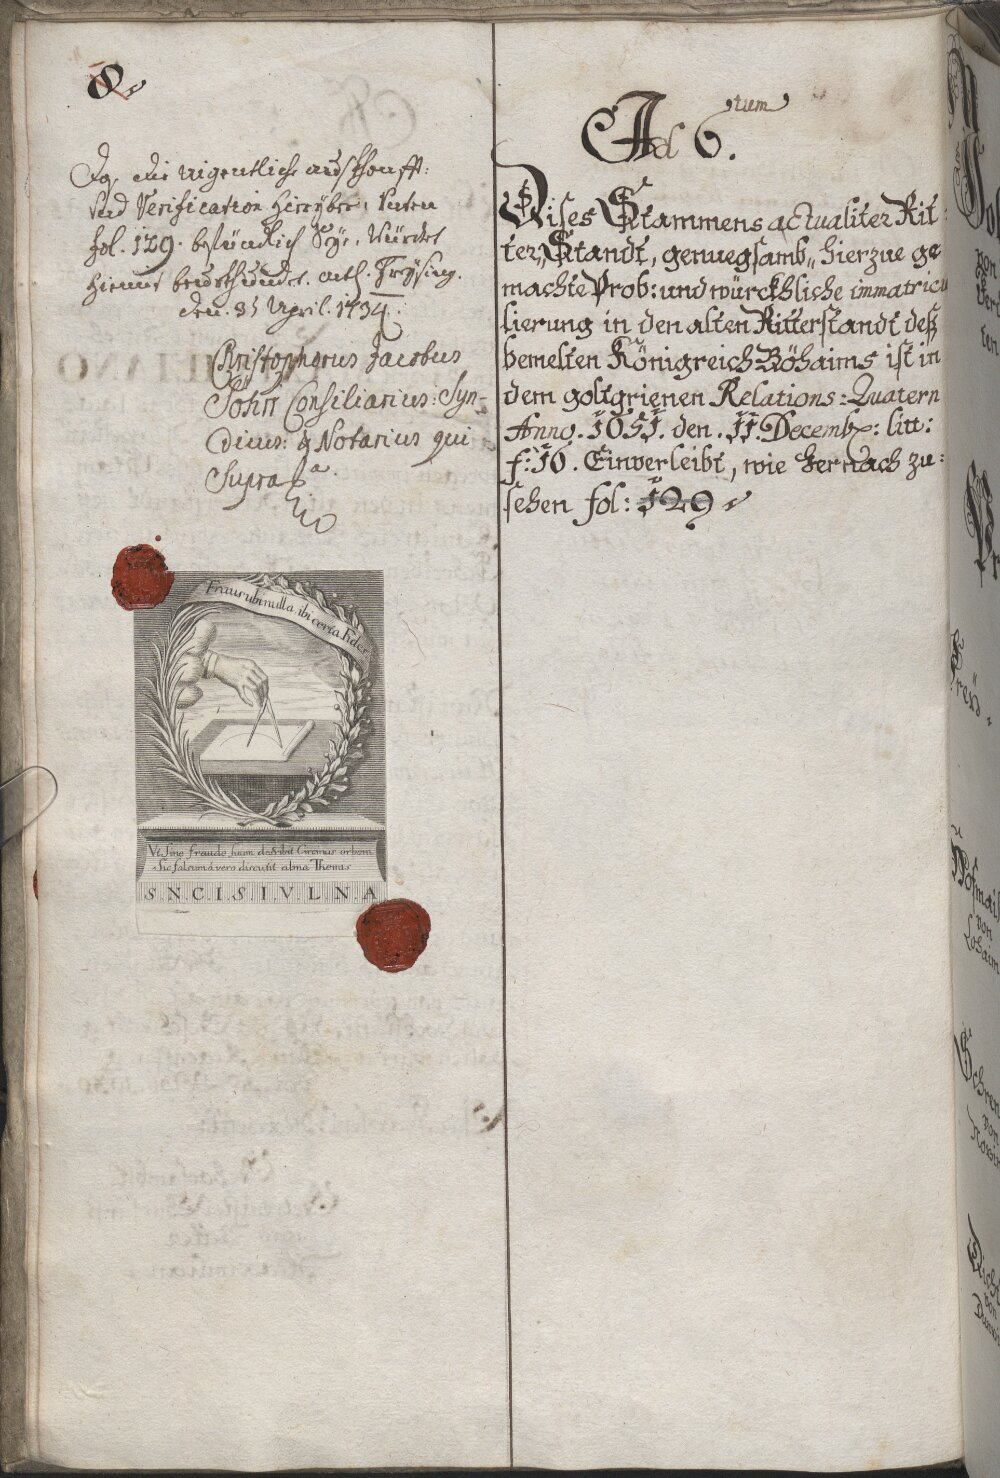 8.
Daß die eigentliche auskhonfft:
und Verification hierüber, unten
fol. 129. befündlich seÿe, würdet
hiemit beurkhundet. actl. Freÿsing.
den. 8t April. 1734.
Christophorus Jacobus
Söhn Consiliarius: Syn-
dicus: & Notarius qui
Supra
Fraus ubi nulla ibi certa Fides
Vt Sine fraude suum describit Circinus orbem
Sic falsum à vero discutit alma Themis
S.N.C.I.S.I.V.L.N.A
Ad 6.tum
Dises Stammens actualiter Rit-
ter„Standt, genuegsamb„ hierzue ge
machte Prob: und würckhliche immatricu
lierung in den alten Ritterstandt deß
bemelten Königreich Böhaims ist in
dem goltgrienen Relations=Quatern
Anno. 1651. den. 11. Decemb: litt:
f: 16. Einverleibt, wie hernach zu=
sehen fol: 129